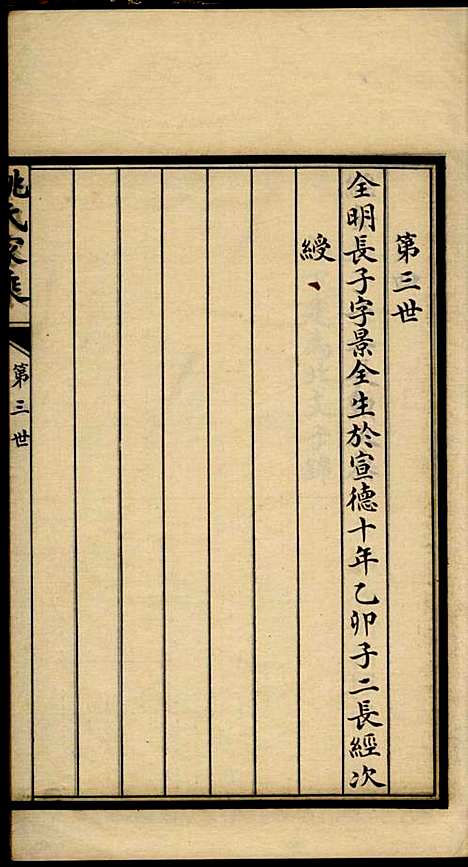 第三世
全明長子字景全生於宣德十年乙卯子二長經次
綬
姚氏家乘
第三世